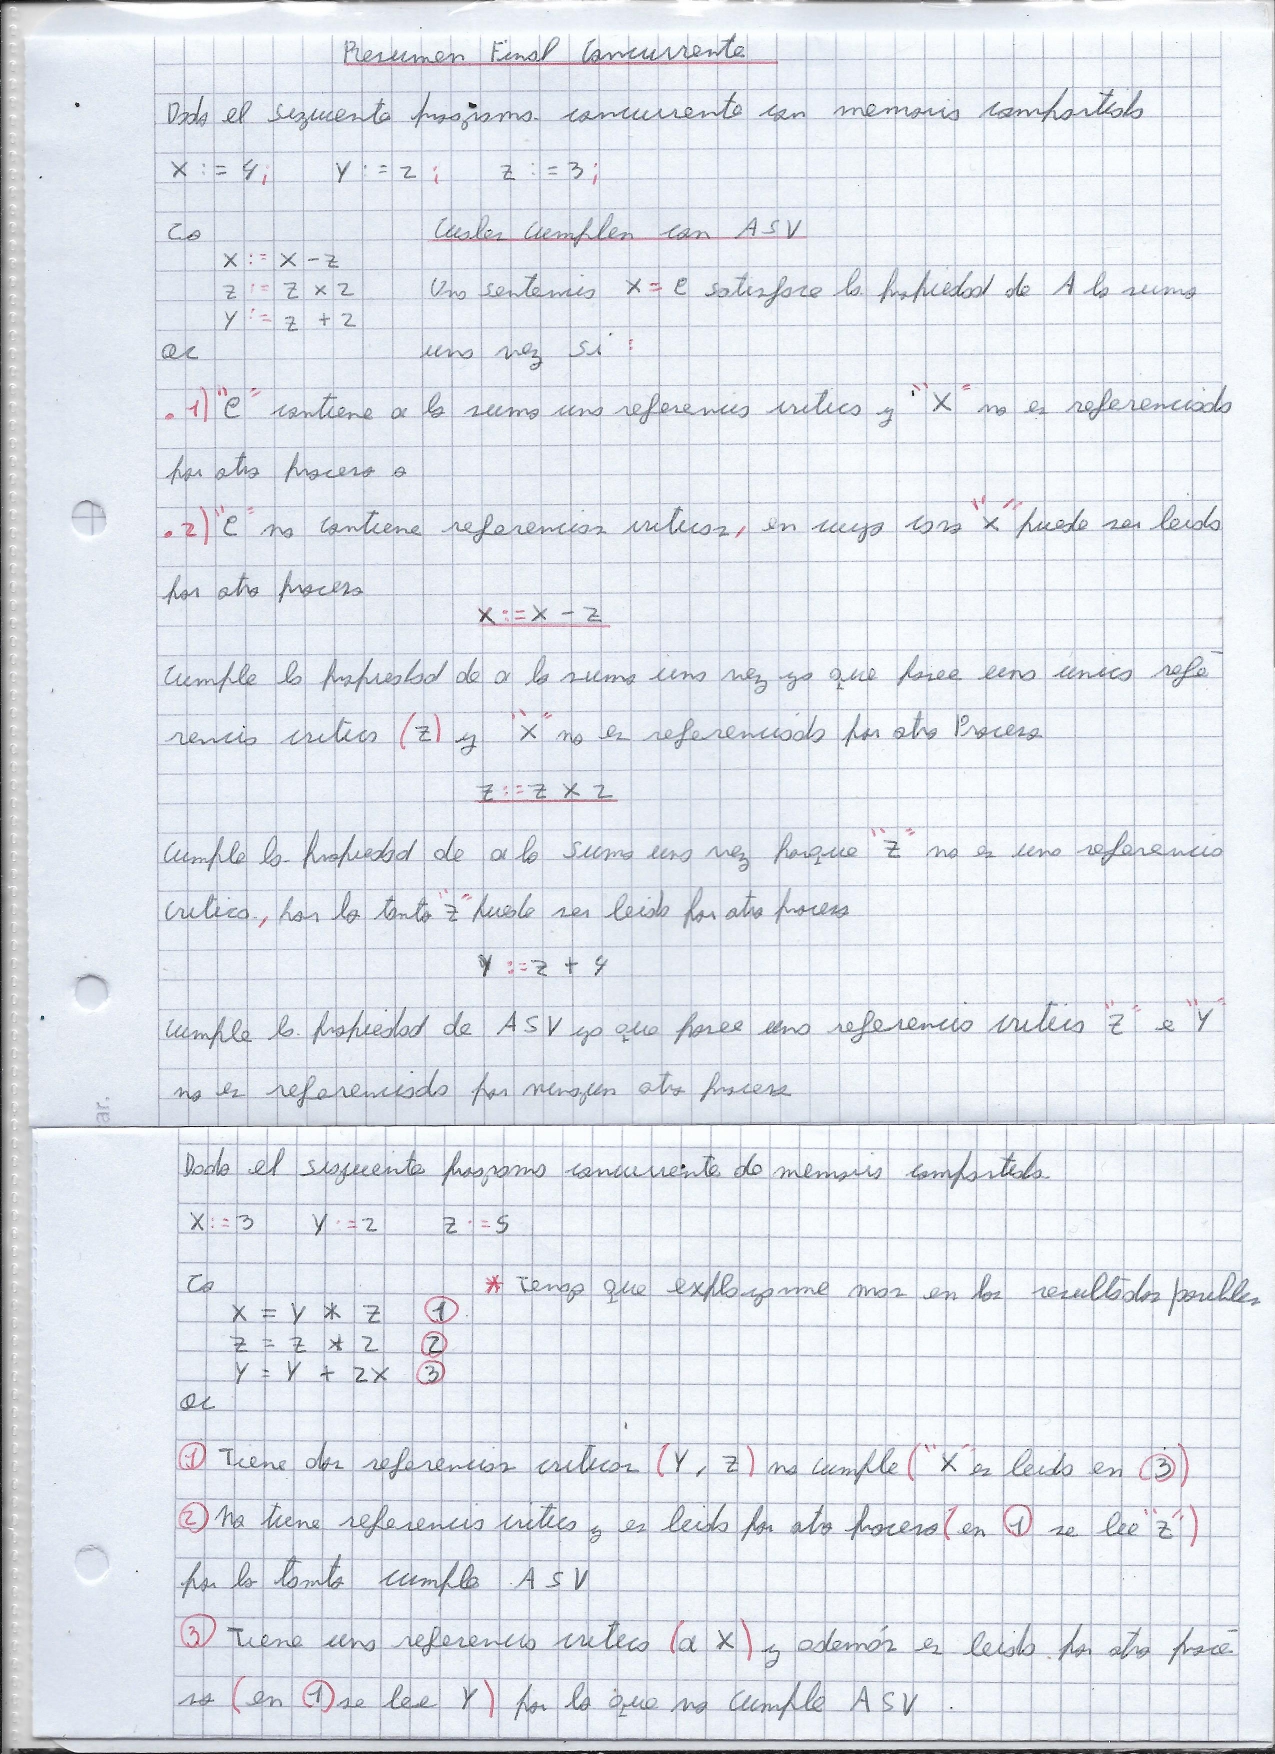 Resumen Final Concurrente
Dado el siguiente programa concurrente con memoria compartida
X := 4; Y := 2; Z := 3;
Co Cuales cumplen con ASV
X := X - Z
Z := Z x 2 Una sentencia X = e satisface la propiedad de A lo sumo
Y := Z + 2
oc una vez si:
• 1) "e" contiene a lo sumo una referencia critica y "X" no es referenciada
por otro proceso o
• 2) "e" no contiene referencias criticas, en cuyo caso "x" puede ser leida
por otro proceso
X := X - Z
Cumple la propiedad de a lo sumo una vez ya que posee una unica refe-
rencia critica (Z) y "X" no es referenciado por otro Proceso
Z := Z x 2
Cumple la propiedad de a lo sumo una vez porque "Z" no es una referencia
critica, por lo tanto "Z" puede ser leido por otro proceso
Y := Z + 4
Cumple la propiedad de ASV ya que posee una referencia critica "Z" e "Y"
no es referenciado por ningun otro proceso
ar.
Dado el siguiente programa concurrente de memoria compartida
X := 3 Y := 2 Z := 5
Co * Tengo que explayarme mas en los resultados posibles
X = Y * Z ①
Z = Z * 2 ②
Y = Y + 2X ③
oc
① Tiene dos referencias criticas (Y, Z) no cumple ("X" es leido en ③)
② No tiene referencia critica y es leido por otro proceso (en ① se lee "Z")
por lo tanto cumple ASV
③ Tiene una referencia critica (a X) y además es leido por otro proce-
so (en ① se lee Y) por lo que no cumple ASV.